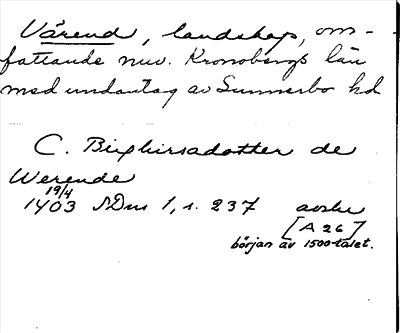 Värend, landskap, om-
fattande nuv. Kronobergs län
med undantag av Sunnerbo hd
C. Birghirsadotter de
Werende
19/4
1403 SDns 1, s. 237 avskr
[A 26]
början av 1500-talet.